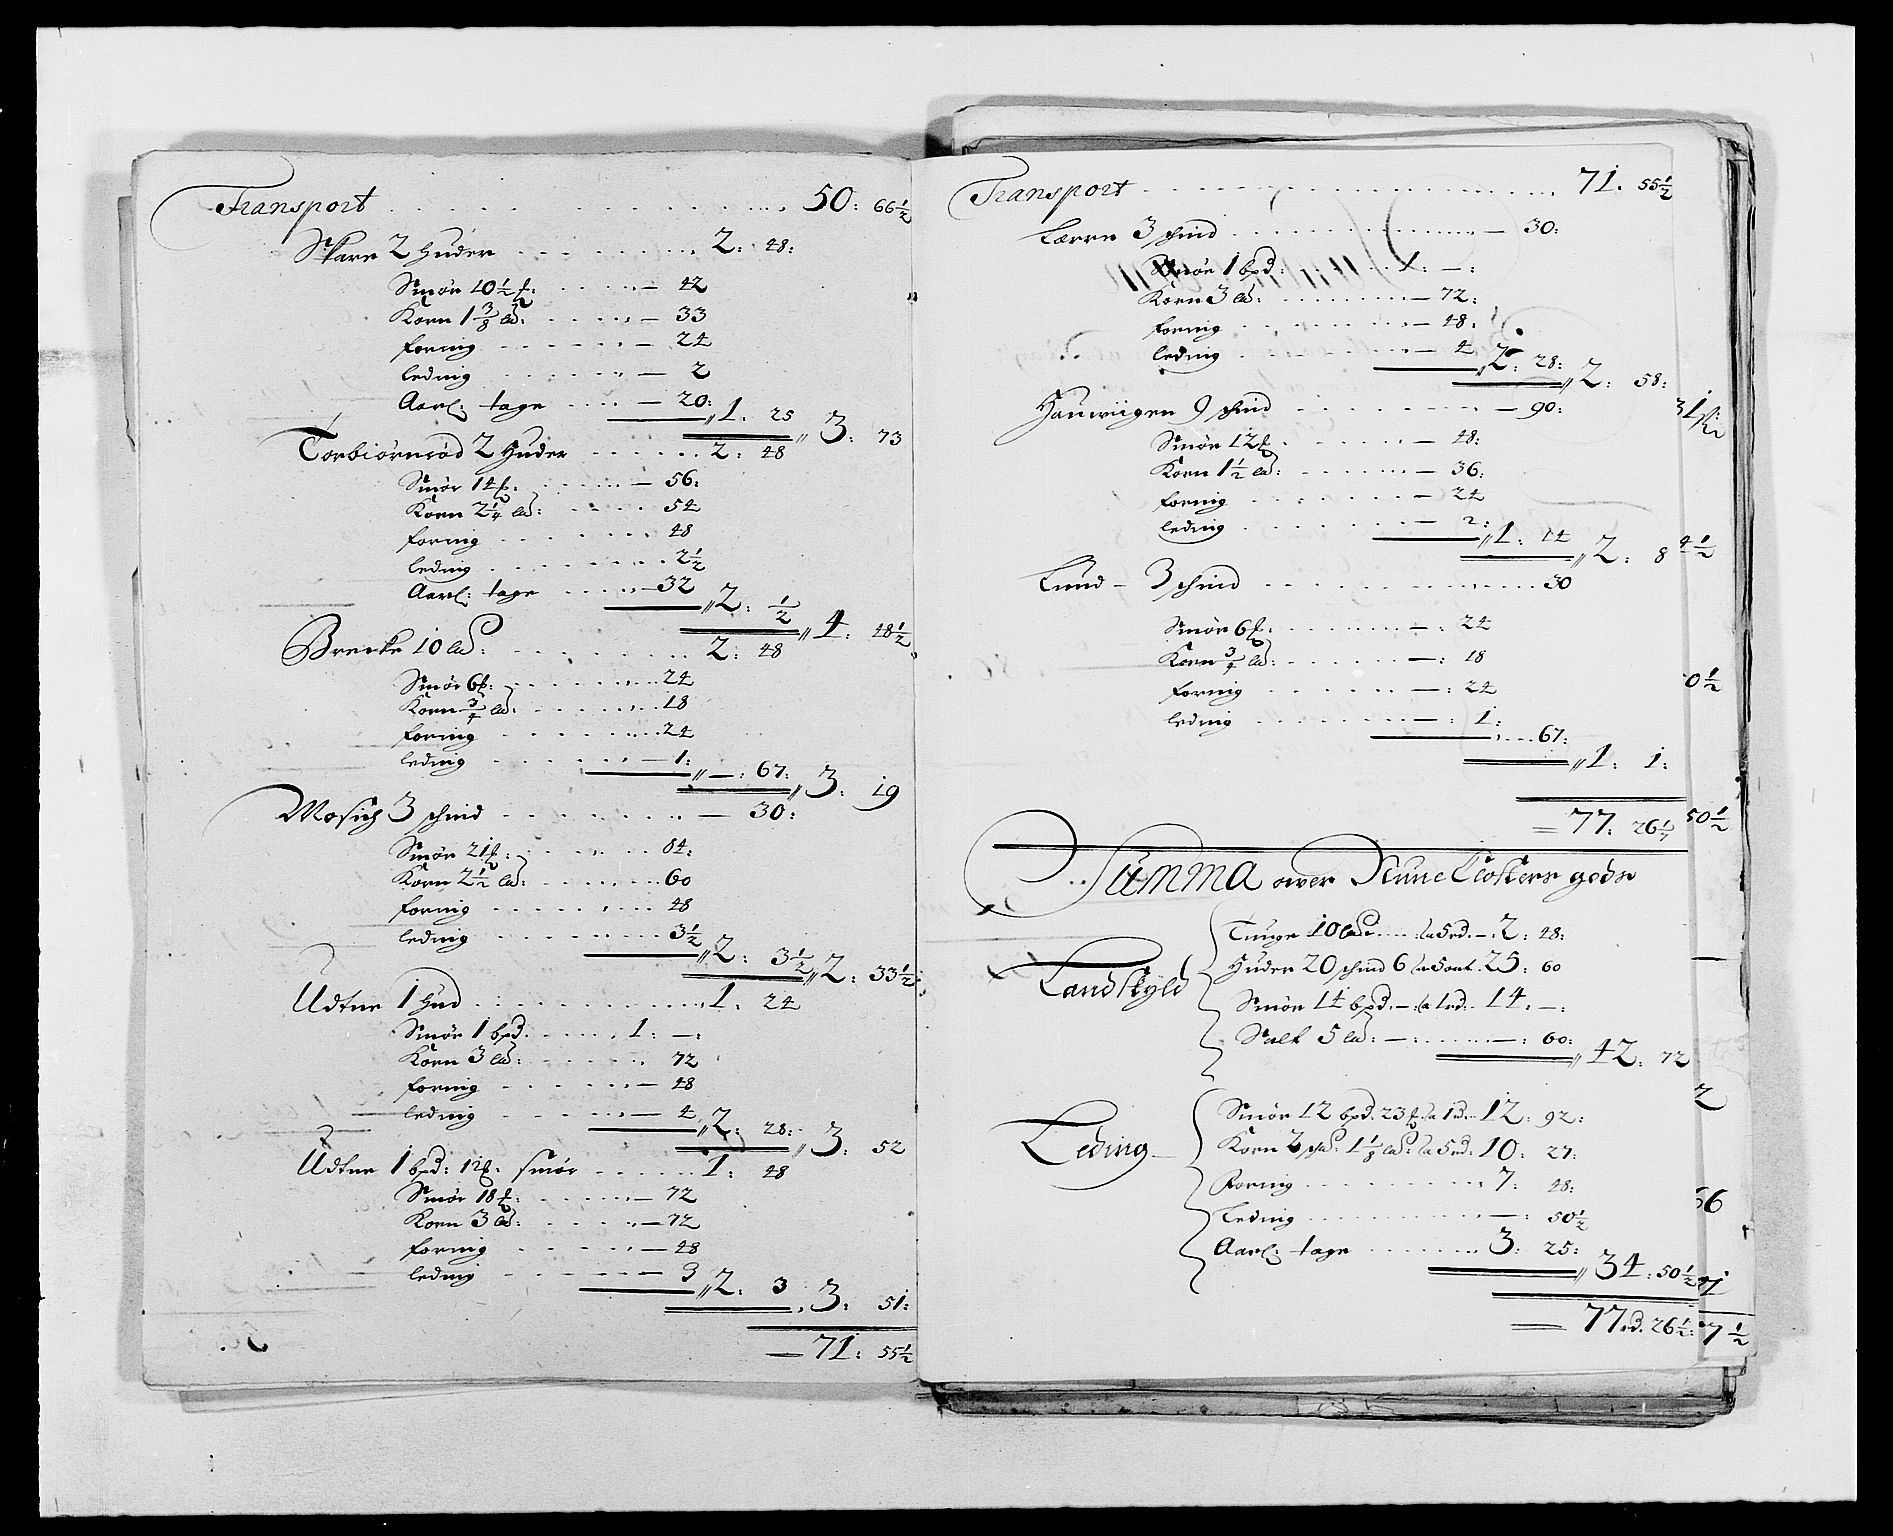 Transport . . . 50: 66½
Skare 2 huder . . . 2: 48:
Smör 10½ ℔: . . . — 42
Korn 1⅜ ld: . . . — 33
foring . . . — 24
leding . . . — 2
Aarl: tage . . . — 20:
1: 25
3: 73
Torbiörnröd 2 Huder . . . 2: 48
Smör 14 ℔: . . . — 56:
Korn 2¼ ld: . . . 54
foring . . . 48
leding . . . 2½
Aarl: tage . . . — 32
2: ½
4: 48½
Brecke 10 ld: . . . 2: 48
Smör 6 ℔: . . . 24
Korn ¾ ld: . . . 18
foring . . . 24
leding . . . — 1:
—: 67:
3: 19
Mosich 3 schind . . . — 30:
Smör 21 ℔: . . . 84:
Korn 2½ ld: . . . 60
foring . . . 48
leding . . . 3½
2: 3½
2: 33½
Udtne 1 Hud . . . 1: 24
Smör 1 bpd. . . . 1: —:
Korn 3 ld: . . . 72
foring . . . — 48
leding . . . — 4
2: 28:
3: 52
Udtne 1 bpd: 12 ℔: smör . . . 1: 48
Smör 18 ℔: . . . — 72
Korn 3 ld: . . . — 72
foring . . . — 48
leding . . . — 3
2: 3
3: 51:
— 71: 55½
Transport . . . 71. 55½
Lerre 3 schind . . . — 30:
Smör 1 bpd: . . . 1: —:
Korn 3 ld: . . . — 72:
foring . . . — 48:
leding . . . — 4
2: 28:
2: 58:
Hauwiigen 9 schind . . . — 90:
Smör 12 ℔ . . . — 48:
Korn 1½ ld: . . . — 36:
foring . . . — 24
leding . . . — 2:
1: 14
2: 8
Lund – 3 schind . . . 30
Smör 6 ℔: . . . —: 24
Korn ¾ ld: . . . —: 18
foring . . . —: 24
leding . . . —: 1:
67:
1: 1:
= 77: 26½
Summa ower Closters gods
Landskyld
Tunge 10 ld: . . . a 5 rd. —. 2: 48:
Huder 20 schind 6 a 5 ort. 25: 60
Smör 14 bpd. —: a 1 rd. . 14. —.
Salt 5 ld: —: . . . —: 60:
42: 72
Leding
Smör 12 bpd. 23 ℔. a 1 d. . 12: 92:
Korn 2 1⅛ ld: a 5 rd: 10: 27:
Foring . . . 7: 48:
Leding . . . —: 50½
Aarl: tage . . . 3: 25:
34: 50½
= 77 rd. 26½:
4½
0½
50½
66
7½